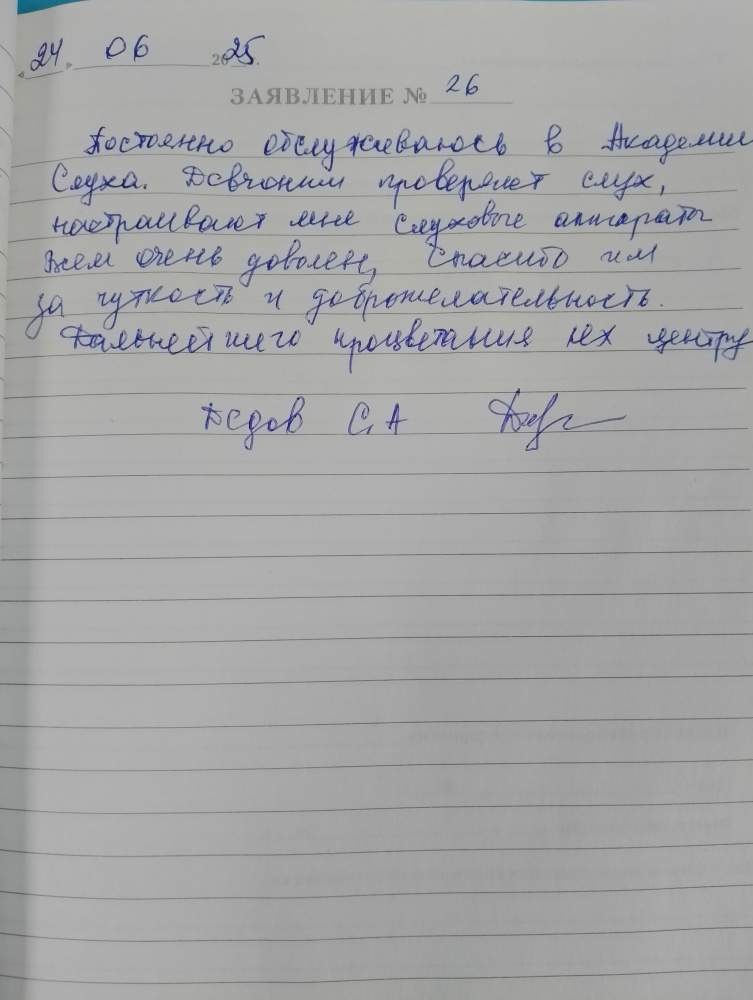 «24» 06 2025.
ЗАЯВЛЕНИЕ № 26
Постоянно обслуживаюсь в Академии
Слуха. Девчонки проверяет слух,
настраивают мне слуховые аппараты
Всем очень доволен, Спасибо им
за чуткость и доброжелательность.
Дальнейшего процветания их центру
Дедов С, А